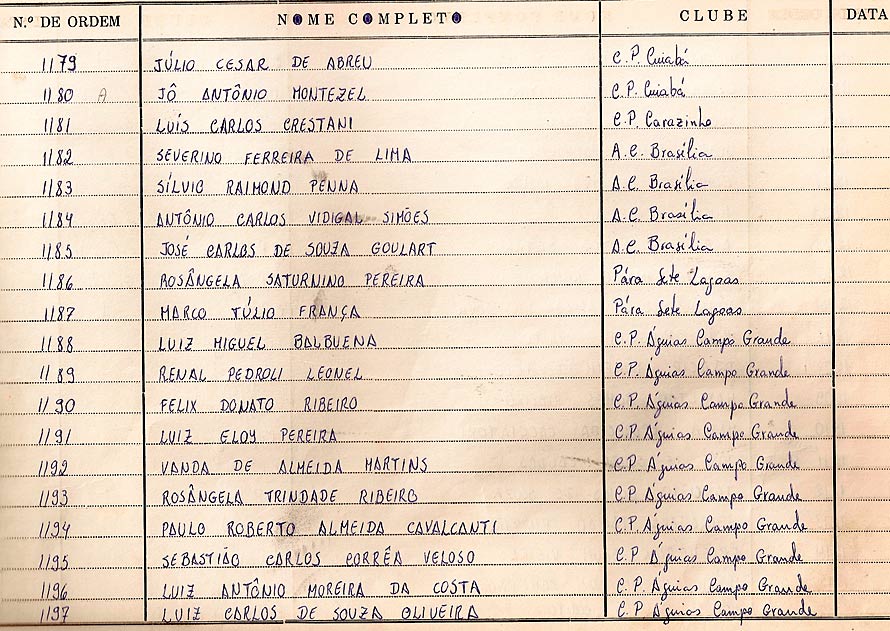 N.º DE ORDEM NOME COMPLETO CLUBE DATA
1179 JÚLIO CESAR DE ABREU C.P. Cuiabá
1180 A JÔ ANTÔNIO MONTEZEL C.P. Cuiabá
1181 LUÍS CARLOS CRESTANI C.P. Carazinho
1182 SEVERINO FERREIRA DE LIMA A.C. Brasília
1183 SÍLVIO RAIMOND PENNA A.C. Brasília
1184 ANTÔNIO CARLOS VIDIGAL SIMÕES A.C. Brasília
1185 JOSÉ CARLOS DE SOUZA GOULART A.C. Brasília
1186 ROSÂNGELA SATURNINO PEREIRA Pára Sete Lagoas
1187 MARCO TÚLIO FRANÇA Pára Sete Lagoas
1188 LUIZ MIGUEL BALBUENA C.P. Águias Campo Grande
1189 RENAL PEDROLI LEONEL C.P. Águias Campo Grande
1190 FELIX DONATO RIBEIRO C.P. Águias Campo Grande
1191 LUIZ ELOY PEREIRA C.P. Águias Campo Grande
1192 VANDA DE ALMEIDA MARTINS C.P. Águias Campo Grande
1193 ROSÂNGELA TRINDADE RIBEIRO C.P Águias Campo Grande
1194 PAULO ROBERTO ALMEIDA CAVALCANTI C.P Águias Campo Grande
1195 SEBASTIÃO CARLOS CORRÊA VELOSO C.P Águias Campo Grande
1196 LUIZ ANTÔNIO MOREIRA DA COSTA C.P. Águias Campo Grande
1197 LUIZ CARLOS DE SOUZA OLIVEIRA C.P Águias Campo Grande